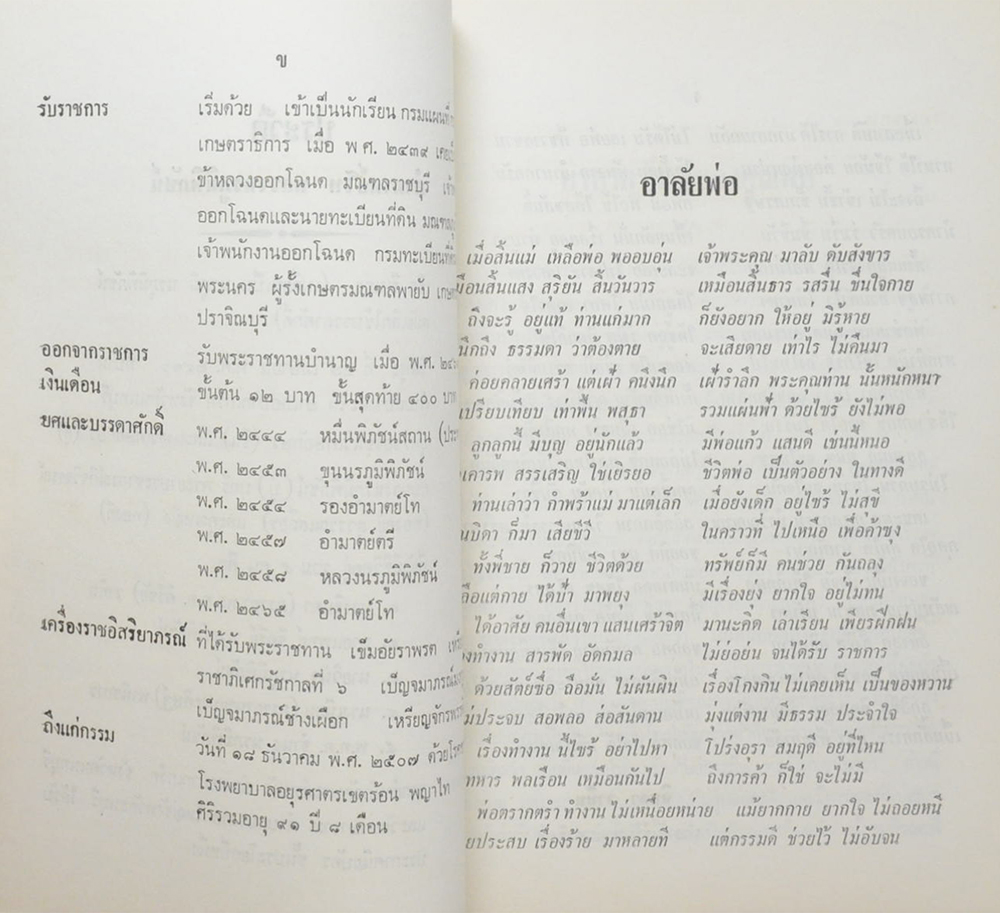 ข
รับราชการ เริ่มด้วย เข้าเป็นนักเรียน กรมแผนที่
เกษตราธิการ เมื่อ พ.ศ. ๒๔๓๙
ข้าหลวงออกโฉนด มณฑลราชบุรี
ออกโฉนดและนายทะเบียนที่ดิน
เจ้าพนักงานออกโฉนด กรมทะเบียนที่
พระนคร ผู้รั้งเกษตรมณฑลพายับ
ปราจิณบุรี
ออกจากราชการ รับพระราชทานบำนาญ เมื่อ พ.ศ.
เงินเดือน ขั้นต้น ๑๒ บาท ขั้นสุดท้าย ๔๐๐ บาท
ยศและบรรดาศักดิ์ พ.ศ. ๒๔๔๔ หมื่นพิภัชน์สถาน
พ.ศ. ๒๔๕๓ ขุนนรภูมิพิภัชน์
พ.ศ. ๒๔๕๔ รองอำมาตย์โท
พ.ศ. ๒๔๕๗ อำมาตย์ตรี
พ.ศ. ๒๔๕๘ หลวงนรภูมิพิภัชน์
พ.ศ. ๒๔๖๕ อำมาตย์โท
เครื่องราชอิสริยาภรณ์ ที่ได้รับพระราชทาน เข็มอัยราพรต
ราชาภิเศกรัชกาลที่ ๖
เบ็ญจมาภรณ์ช้างเผือก
ถึงแก่กรรม วันที่ ๑๘ ธันวาคม พ.ศ. ๒๕๐๗
โรงพยาบาลอยุรศาตรเขตร้อน พญาไท
ศิริรวมอายุ ๙๑ ปี ๘ เดือน
อาลัยพ่อ
เมื่อสิ้นแม่ เหลือพ่อ พออบอุ่น เจ้าพระคุณ มาลับ ดับสังขาร
สิ้นแสง สุริยัน สิ้นวันวาร เหมือนสิ้นธาร รสรื่น ชื่นใจกาย
ถึงจะรู้ อยู่แท้ ท่านแก่มาก ก็ยังอยาก ให้อยู่ มิรู้หาย
นึกถึง ธรรมดา ว่าต้องตาย จะเสียดาย เท่าไร ไม่คืนมา
ค่อยคลายเศร้า แต่เฝ้า คนึงนึก เฝ้ารำลึก พระคุณท่าน นั้นหนักหนา
เปรียบเทียบ เท่าพื้น พสุธา รวมแผ่นฟ้า ด้วยไซร้ ยังไม่พอ
ลูกลูกนี้ มีบุญ อยู่นักแล้ว มีพ่อแก้ว แสนดี เช่นนี้หนอ
เคารพ สรรเสริญ ใช่เยิรยอ ชีวิตพ่อ เป็นตัวอย่าง ในทางดี
ท่านเล่าว่า กำพร้าแม่ มาแต่เล็ก เมื่อยังเด็ก อยู่ไซร้ ไม่สุขี
บิดา ก็มา เสียชีวี ในคราวที่ ไปเหนือ เพื่อค้าซุง
ทั้งพี่ชาย ก็วาย ชีวิตด้วย ทรัพย์ก็มี คนช่วย กันถลุง
แต่กาย ได้ป้า มาพยุง มีเรื่องยุง ยากใจ อยู่ไม่ทน
ได้อาศัย คนอื่นเขา แสนเศร้าจิต มานะคิด เล่าเรียน เพียรฝึกฝน
ทำงาน สารพัด อัดกมล ไม่ย่อย่น จนได้รับ ราชการ
ด้วยสัตย์ซื่อ ถือมั่น ไม่ผันผิน เรื่องโกงกิน ไม่เคยเห็น เป็นของหวาน
ประจบ สอพลอ ส่อสันดาน มุ่งแต่งาน มีธรรม ประจำใจ
เรื่องทำงาน นี้ไซร้ อย่าไปหา โปร่งอุรา สมฤดี อยู่ที่ไหน
ทหาร พลเรือน เหมือนกันไป ถึงการค้า ก็ใช่ จะไม่มี
พ่อตรากตรำ ทำงาน ไม่เหนื่อยหน่าย แม้ยากกาย ยากใจ ไม่ถอยหนี
ประสบ เรื่องร้าย มาหลายที แต่กรรมดี ช่วยไว้ ไม่อับจน